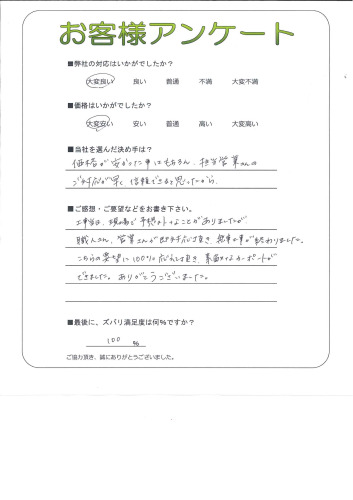 お客様アンケート
■弊社の対応はいかがでしたか？
大変良い 良い 普通 不満 大変不満
■価格はいかがでしたか？
大変安い 安い 普通 高い 大変高い
■当社を選んだ決め手は？
価格が安かった事はもちろん、担当営業さんの
ご対応が早く信頼できると思ったから。
■ご感想・ご要望などをお書き下さい。
工事当日、現場で予想外なことがありましたが
職人さん、営業さんが即対応頂き、無事工事が終わりました。
こちらの要望に100%応えて頂き、素敵なカーポートが
できました。ありがとうございました。
■最後に、ズバリ満足度は何％ですか？
100 %
ご協力頂き、誠にありがとうございました。